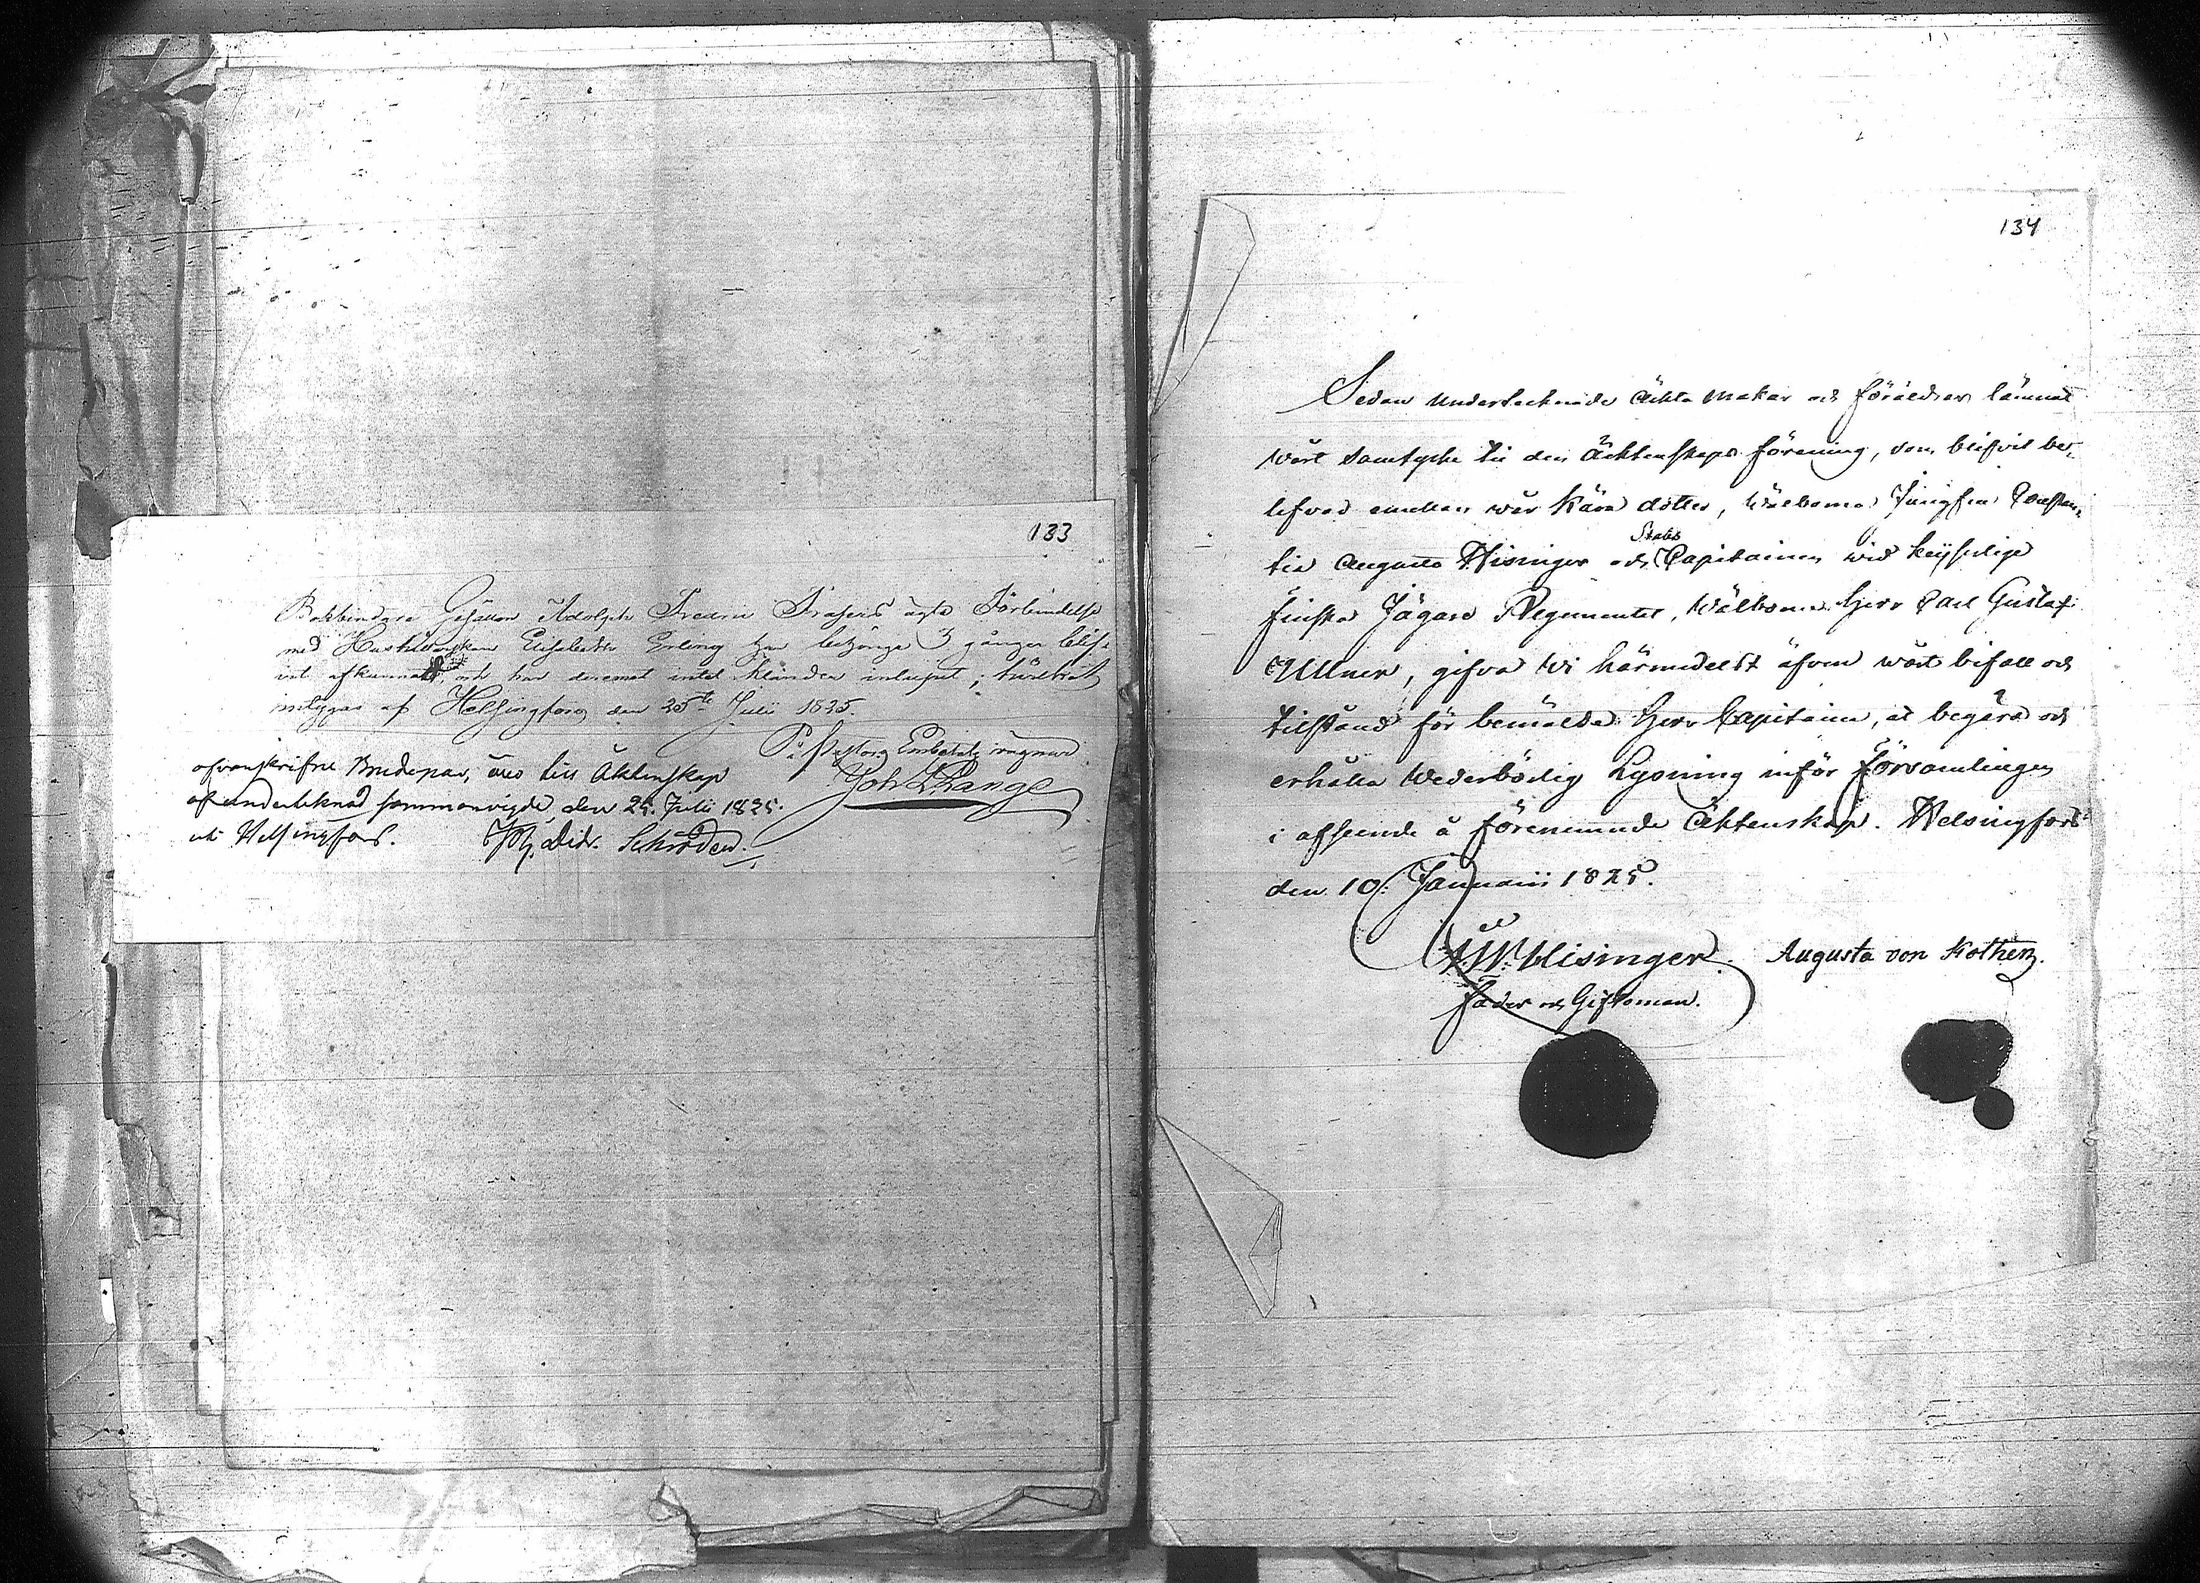 133
Bokbindare Gesällen Adolph Fredric Frasers ägta Förbindelse
med Hushållerskan Elisabeth Erling har behörige 3 gånger blif-
vit afkunnad, och har deremot intet klander inlupit; hvilket
intygas af Helsingfors den 25te Julii 1825.
Pastors Embetets vägnar
Joh Prange
ofvanskrifne Brudepar, äro till Äktenskap
af undertecknad sammanvigde, den 25. Julii 1825.
uti Helsingfors. Did. Schröder.
134
Sedan undertecknade Äkta Makar och föräldrar lämnat
vårt samtycke till den Äcktenskaps förening, som blifvit be-
lefvad emellan vår kära dotter, Wälborna Jungfru Constan-
tia Augusta Hisinger och Stabs Capitainen wid Keijserlige
finska Jägare Regementet, Wälborne Herr Carl Gustaf
Ullner, gifva Wi härmedelst äfven vårt bifall och
tillstånd för bemälde Herr Capitaine, at begära och
erhålla Wederbörlig Lysning inför Församlingen
i afseende å förenämnde Äktenskap. Helsingfors
den 10. Januarii 1825.
Hisinger. Augusta von Kothen.
fader och Giftoman.